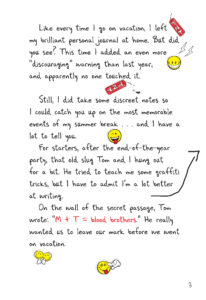 Like every time I go on vacation, I left
my brilliant personal journal at home. But did
you see? This time I added an even more
"discouraging" warning than last year,
and apparently no one touched it.
Still, I did take some discreet notes so
I could catch you up on the most memorable
events of my summer break . . . and I have a
lot to tell you.
For starters, after the end-of-the-year
party, that old slug Tom and I hung out
for a bit. He tried to teach me some graffiti
tricks, but I have to admit I'm a lot better
at writing.
On the wall of the secret passage, Tom
wrote: "M + T = blood brothers." He really
wanted us to leave our mark before we went
on vacation.
3